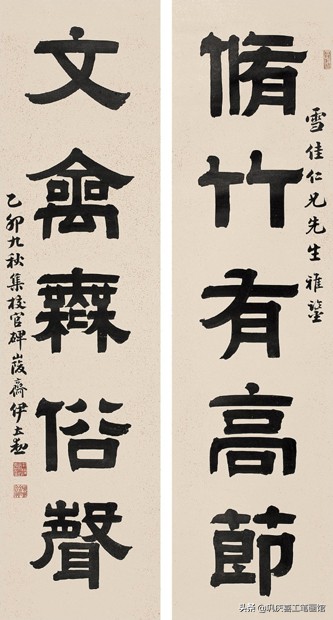 雪佳仁兄先生雅鑒
脩竹有高節
文禽無俗聲
乙卯九秋集校官碑峻齋伊立勳
头条 @巩庆喜工笔画馆